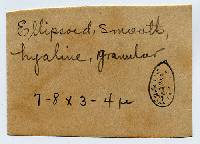 Ellipsoid, smooth,
hyaline, granular
7-8 x 3-4 µ